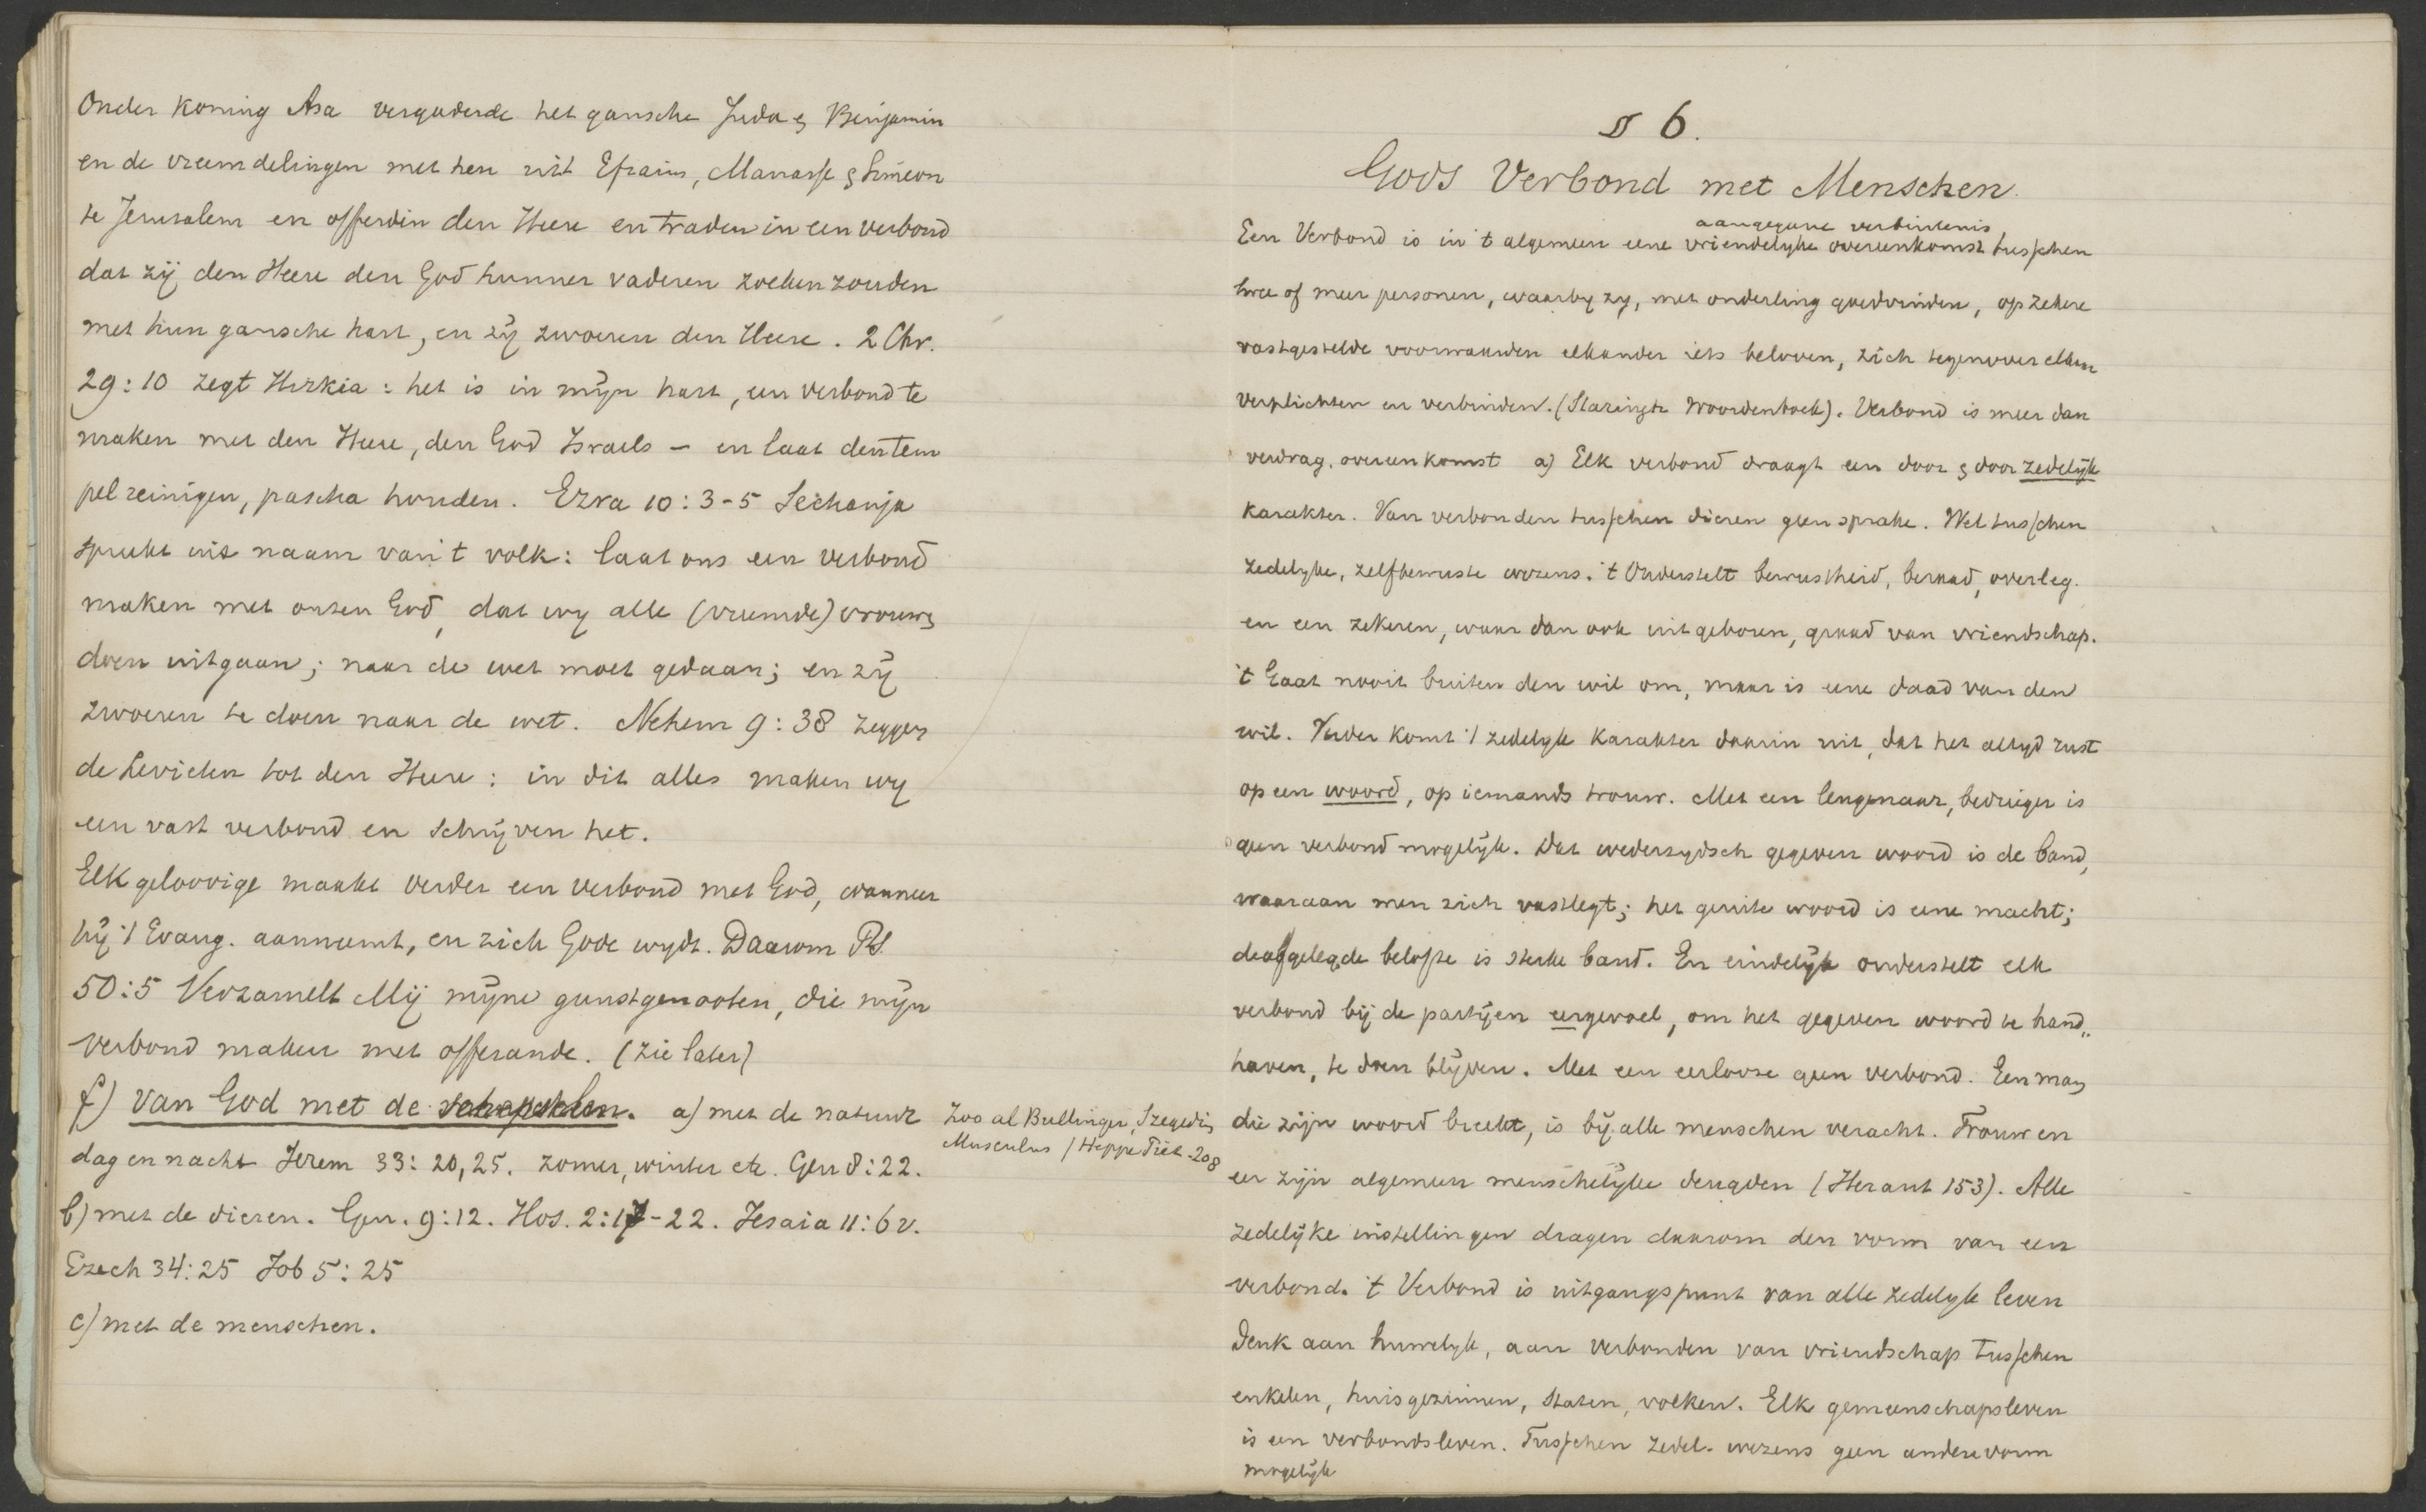 Onder koning Asa vergaderde het gansche Juda & Benjamin
en de vreemdelingen met hen uit Efraim, Manasse & Simeon
te Jerusalem en offerden den Heere en traden in een verbond
dat zij den Heere den God hunner vaderen zoeken zouden
met hun gansche hart, en zij zwoeren den Heere. 2 Chr.
29:10 zegt Hizkia: het is in mijn hart, een verbond te
maken met den Heere, den God Israels – en laat den tem
pel reinigen, pascha houden. Ezra 10:3-5 Sechanja
spreekt uit naam van 't volk: laat ons een verbond
maken met onzen God, dat wy alle (vreemde) vrouwen
doen uitgaan; naar de wet moet gedaan; en zij
zwoeren te doen naar de wet. Nehem 9:38 zeggen
de Levieten tot den Heere: in dit alles maken wy
een vast verbond en schrijven het.
Elk geloovige maakt verder een verbond met God, wanneer
hij 't Evang. aanneemt, en zich Gode wydt. Daarom Ps.
50:5 Verzamelt Mij mijne gunstgenooten, die mijn
verbond maken met offerande. (zie later)
f) van God met de schepselen. a) met de natuur
dag en nacht Jerem 33:20,25. zomer, winter etc. Gen 8:22.
b) met de dieren. Gen. 9:12. Hos. 2:17-22. Jesaia 11:6v.
Ezech 34:25 Job 5:25
c) met de menschen.
Zoo al Bullinger, Szegedin
Musculus (Heppe Piet. 208
§ 6.
Gods Verbond met Menschen.
aangegane verbintenis
Een Verbond is in 't algemeen eene vriendelyke overeenkomst tusschen
twee of meer personen, waarby zy, met onderling goedvinden, op zekere
vastgestelde voorwaarden elkander iets beloven, zich tegenover elkaar
verplichten en verbinden. (Woordenboek). Verbond is meer dan
verdrag, overeenkomst a) Elk verbond draagt een door & door zedelijk
karakter. Van verbonden tusschen dieren geen sprake. Wel tusschen
zedelyke, zelfbewuste wezens. 't Onderstelt bewustheid, beraad, overleg.
en een zekeren, waar dan ook uit geboren, graad van vriendschap.
't Gaat nooit buiten den wil om, maar is eene daad van den
wil. Verder komt 't zedelyk karakter daarin uit, dat het altyd rust
op een woord, op iemands trouw. Met een leugenaar, bedrieger is
geen verbond mogelijk. Dat wederzydsch gegeven woord is de band,
waaraan men zich vastlegt; het geuite woord is eene macht;
de afgelegde belofte is sterke band. En eindelijk onderstelt elk
verbond bij de partijen eergevoel, om het gegeven woord te hand„
haven, te doen blijven. Met een eerlooze geen verbond. Een man
die zijn woord breekt, is bij alle menschen veracht. Trouw en
eer zijn algemeen menschelijke deugden (Herant 153). Alle
zedelijke instellingen dragen daarom den vorm van een
verbond. 't Verbond is uitgangspunt van alle zedelyk leven
Denk aan huwelyk, aan verbonden van vriendschap tusschen
enkelen, huisgezinnen, staten, volken. Elk gemeenschapsleven
is een verbondsleven. Tusschen zedel. wezens geen andere vorm
mogelijk